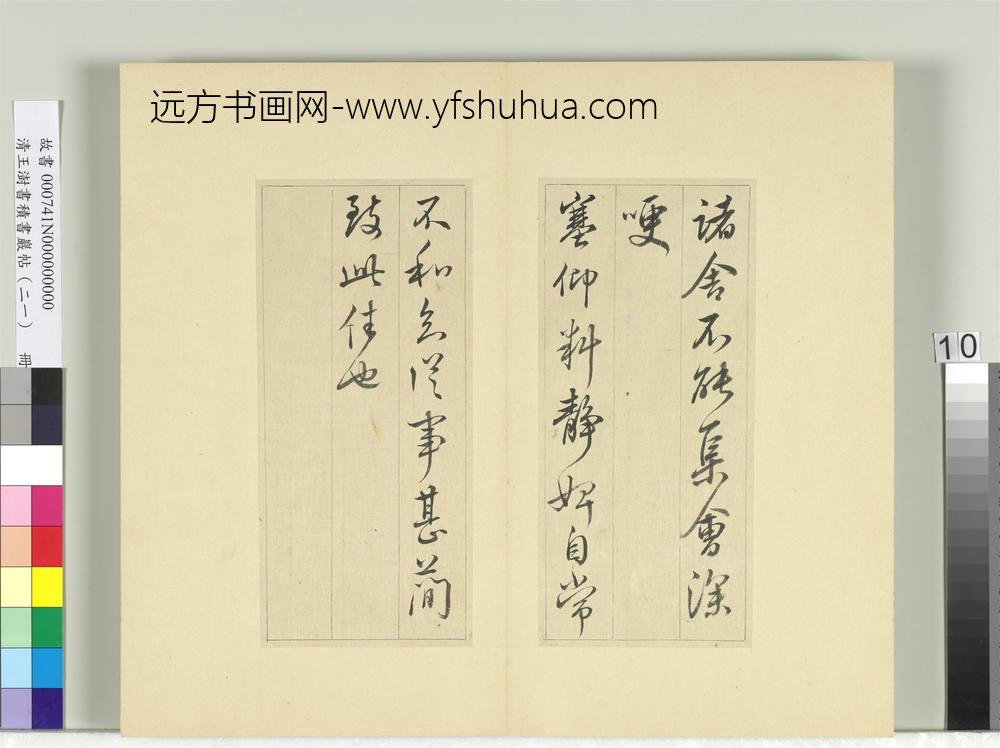 远方书画网-www.yfshuhua.com
故書 000741N000000000
清王澍書積書巖帖(二一) 冊
10
諸舍不能集會深
哽
塞仰料靜婢自常
不和念從事甚簡
致此佳也